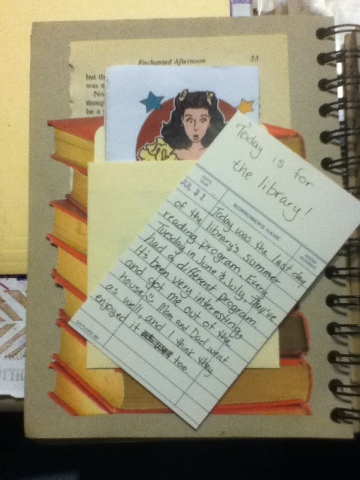 Enchanted Afternoon 33
but th
was n
No
thoug
be a
Today is for
the library!
JUL 31
BORROWER'S NAME
Today was the last day
of the library's summer
reading program. Every
Tuesday in June & July, they've
had a different program.
It's been very interesting,
and got me out of the
house. Mom and Dad went
as well, and I think they
enjoyed it too.